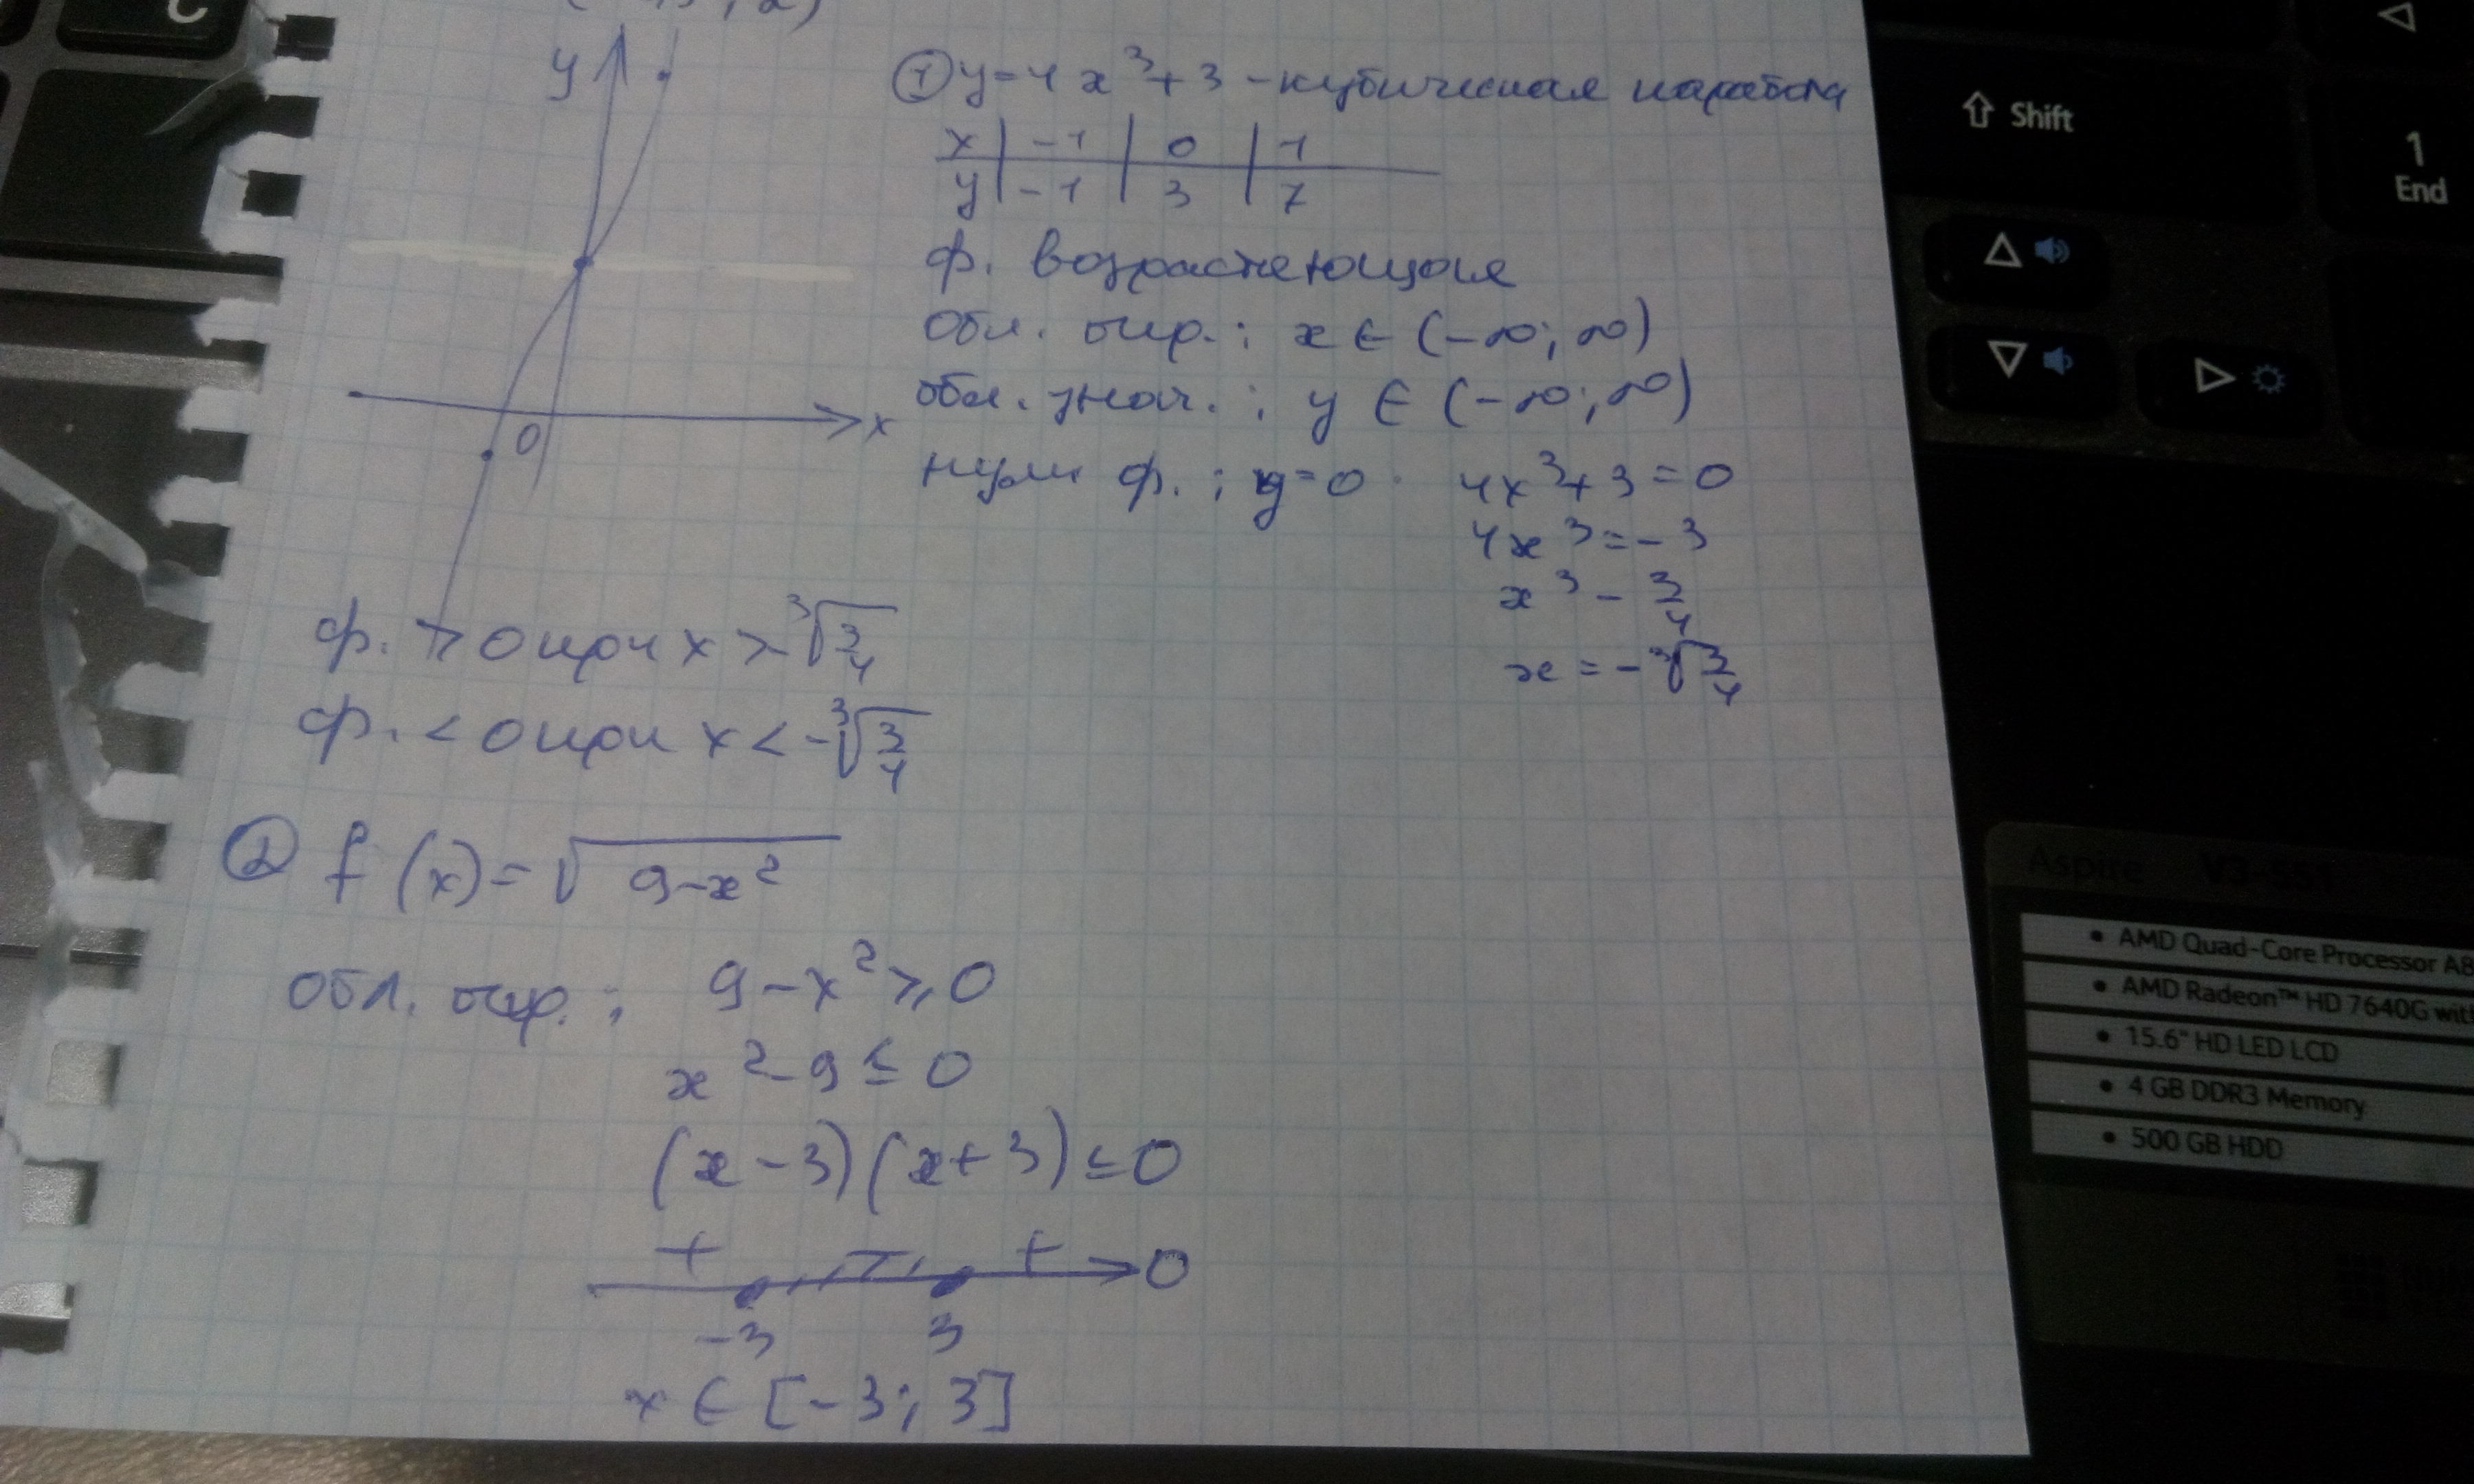 y
① y=4x³+3 - кубическая парабола
x | -1 | 0 | 1
y | -1 | 3 | 7
ф. возрастающая
обл. опр.: x ∈ (-∞; ∞)
обл. знач.: y ∈ (-∞; ∞)
x
0
нули ф.: y=0 4x³+3=0
4x³=-3
x³ - 3/4
x = -∛(3/4)
ф. > 0 при x > -∛(3/4)
ф. < 0 при x < -∛(3/4)
② f(x)=√(9-x²)
обл. опр.: 9-x² ⩾ 0
x²-9 ≤ 0
(x-3)(x+3) ≤ 0
+ - + 0
-3 3
x ∈ [-3; 3]
C
⇧ Shift
1
End
Aspire V3-551
• AMD Quad-Core Processor A8
• AMD Radeon™ HD 7640G with
• 15.6" HD LED LCD
• 4 GB DDR3 Memory
• 500 GB HDD